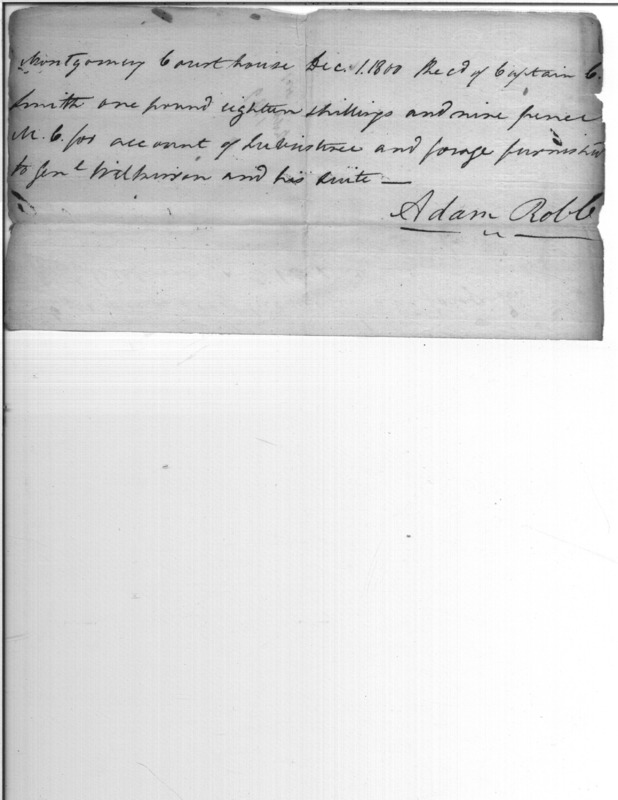 Montgomery Court house Dec. 1. 1800 Rec'd of Captain C.
Smith one pound eighteen shillings and nine pence
M. C. for account of Subsistnce and forage furnish'd
to Genl Wilkinson and his suite —
Adam Robb